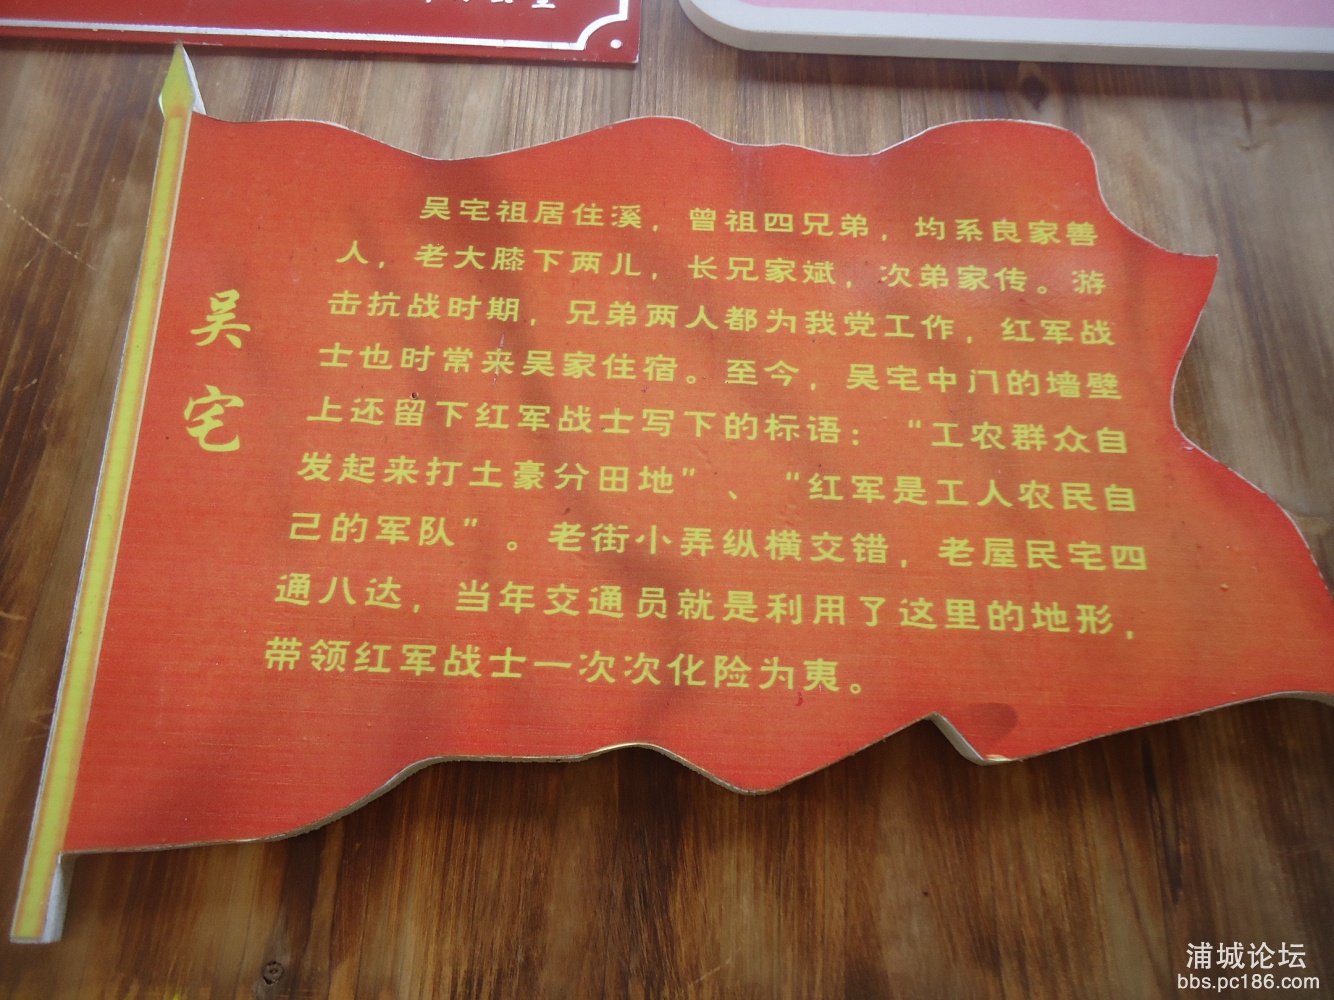 吴宅
吴宅祖居住溪，曾祖四兄弟，均系良家善
人，老大膝下两儿，长兄家斌，次弟家传。游
击抗战时期，兄弟两人都为我党工作，红军战
士也时常来吴家住宿。至今，吴宅中门的墙壁
上还留下红军战士写下的标语：“工农群众自
发起来打土豪分田地”、“红军是工人农民自
己的军队”。老街小弄纵横交错，老屋民宅四
通八达，当年交通员就是利用了这里的地形，
带领红军战士一次次化险为夷。
浦城论坛
bbs.pc186.com